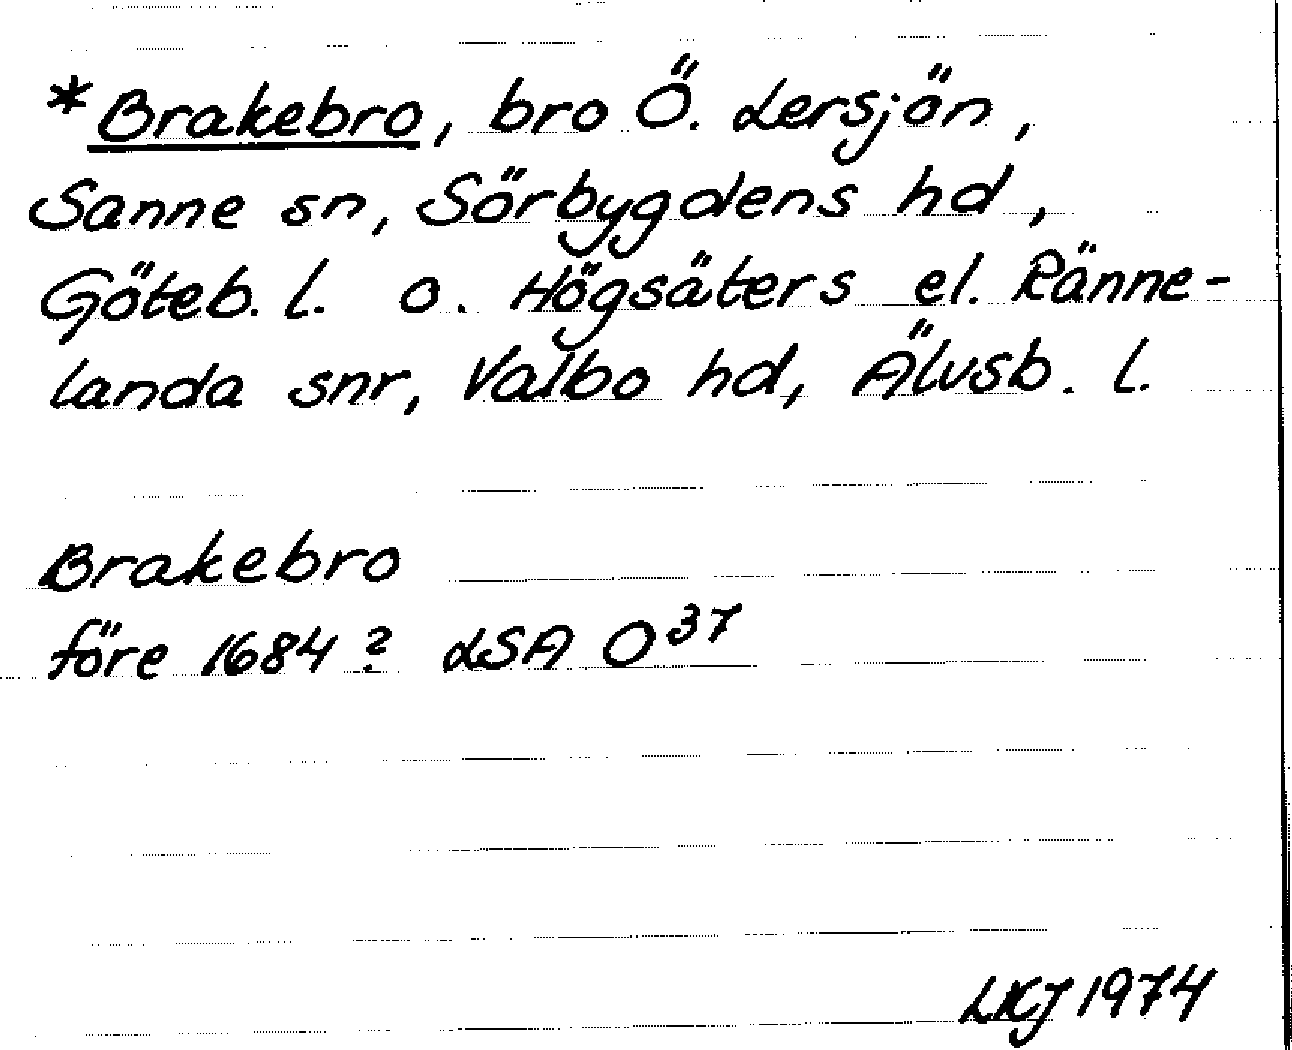 *Brakebro, bro Ö. Lersjön,
Sanne sn, Sörbygdens hd,
Göteb. l. o. Högsäters el. Ränne-
landa snr, Valbo hd, Älvsb. l.
Brakebro
före 1684? LSA O³⁷
LKJ 1974